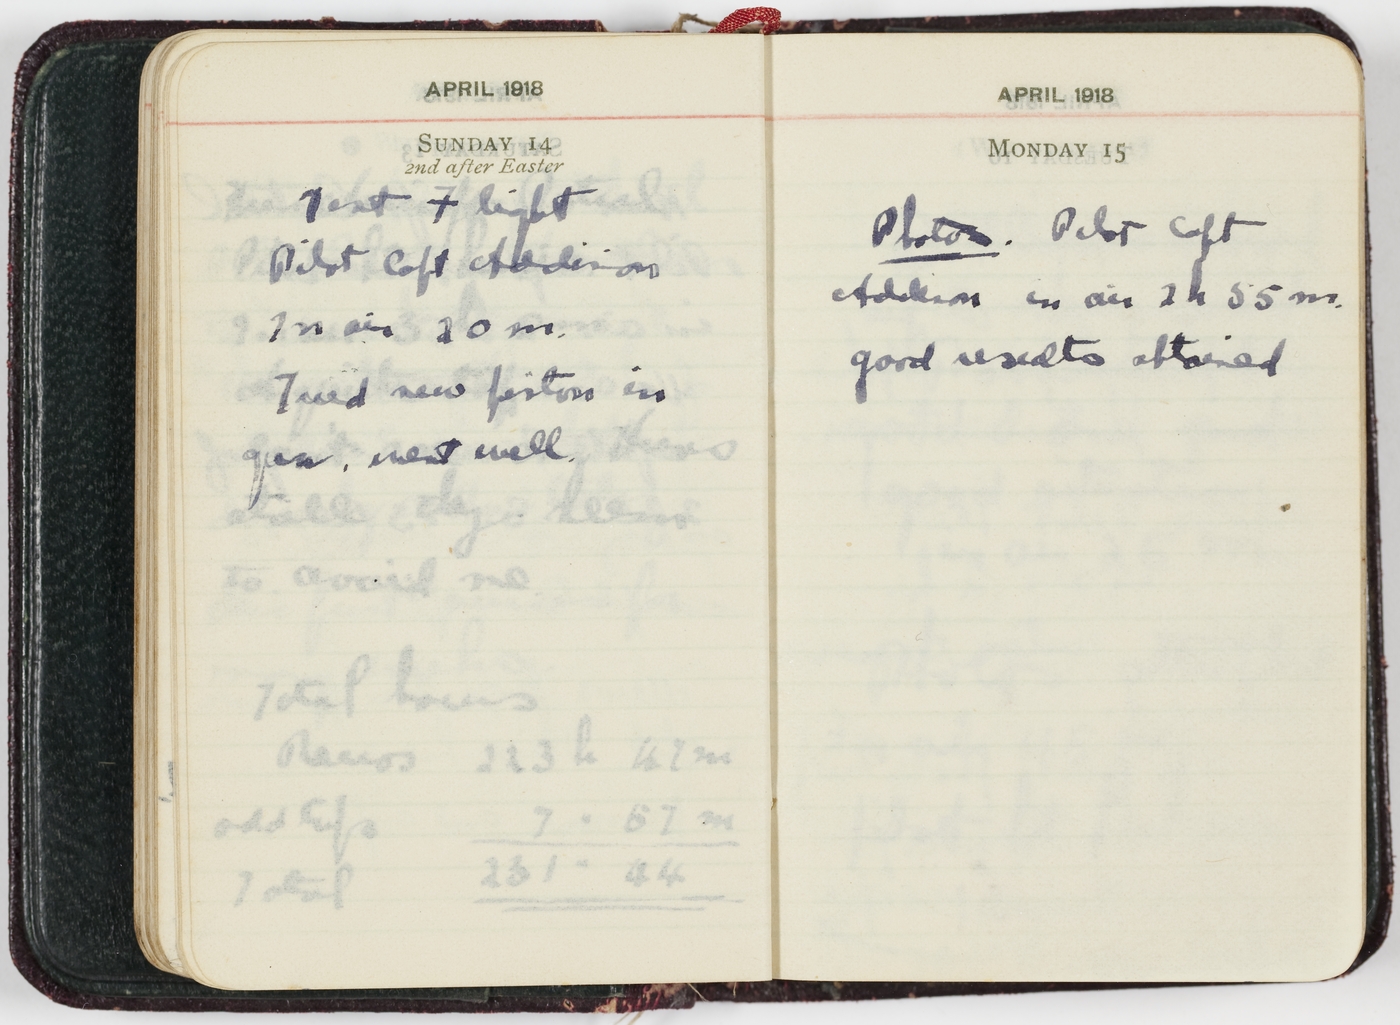 APRIL 1918
SUNDAY 14
2nd after Easter
Test Flight
Pilot Capt Addison
In air 20 m.
Tried new piston in
gun, went well.
to avoid me
Total hours
Recios 223 h 47 m
odd trips 7 · 57 m
Total 231 · 44
APRIL 1918
MONDAY 15
Photos. Pilot Capt
Addison in air 2 h 55 m.
good results obtained